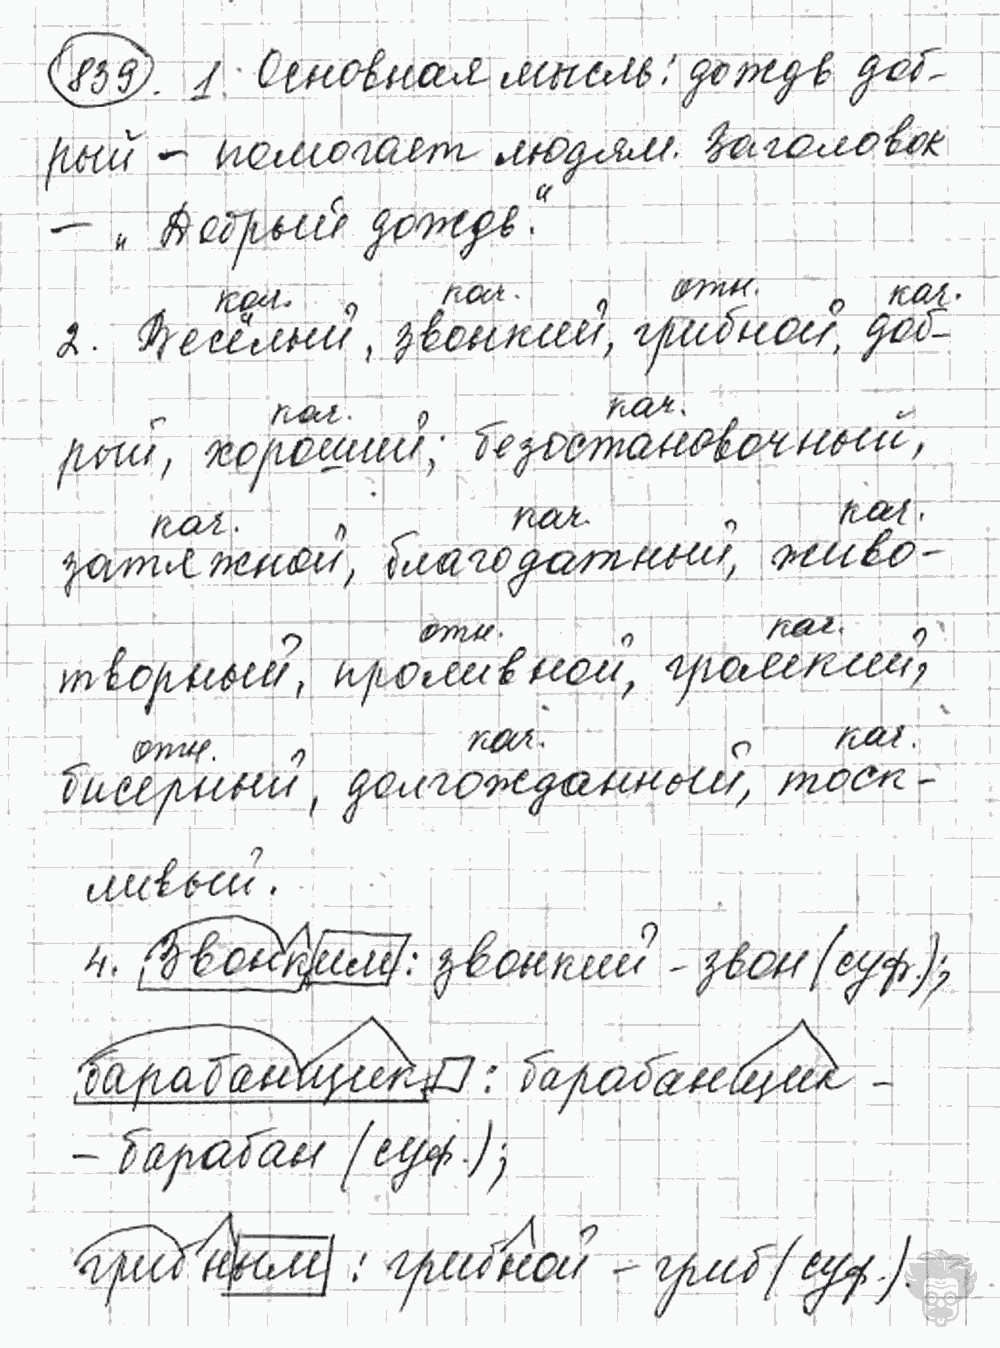 839. 1. Основная мысль: дождь доб-
рый – помогает людям. Заголовок
– „Добрый дождь."
кач. кач. отн. кач.
2. Весёлый, звонкий, грибной, доб-
кач. кач.
рый, хороший; безостановочный,
кач. кач. кач.
затяжной, благодатный, живо-
отн. кач.
творный, проливной, громкий;
отн. кач. кач.
бисерный, долгожданный, тоск-
ливый.
4. Звонким: звонкий – звон (суф.);
барабанщик: барабанщик –
– барабан (суф.);
грибным: грибной – гриб (суф.).